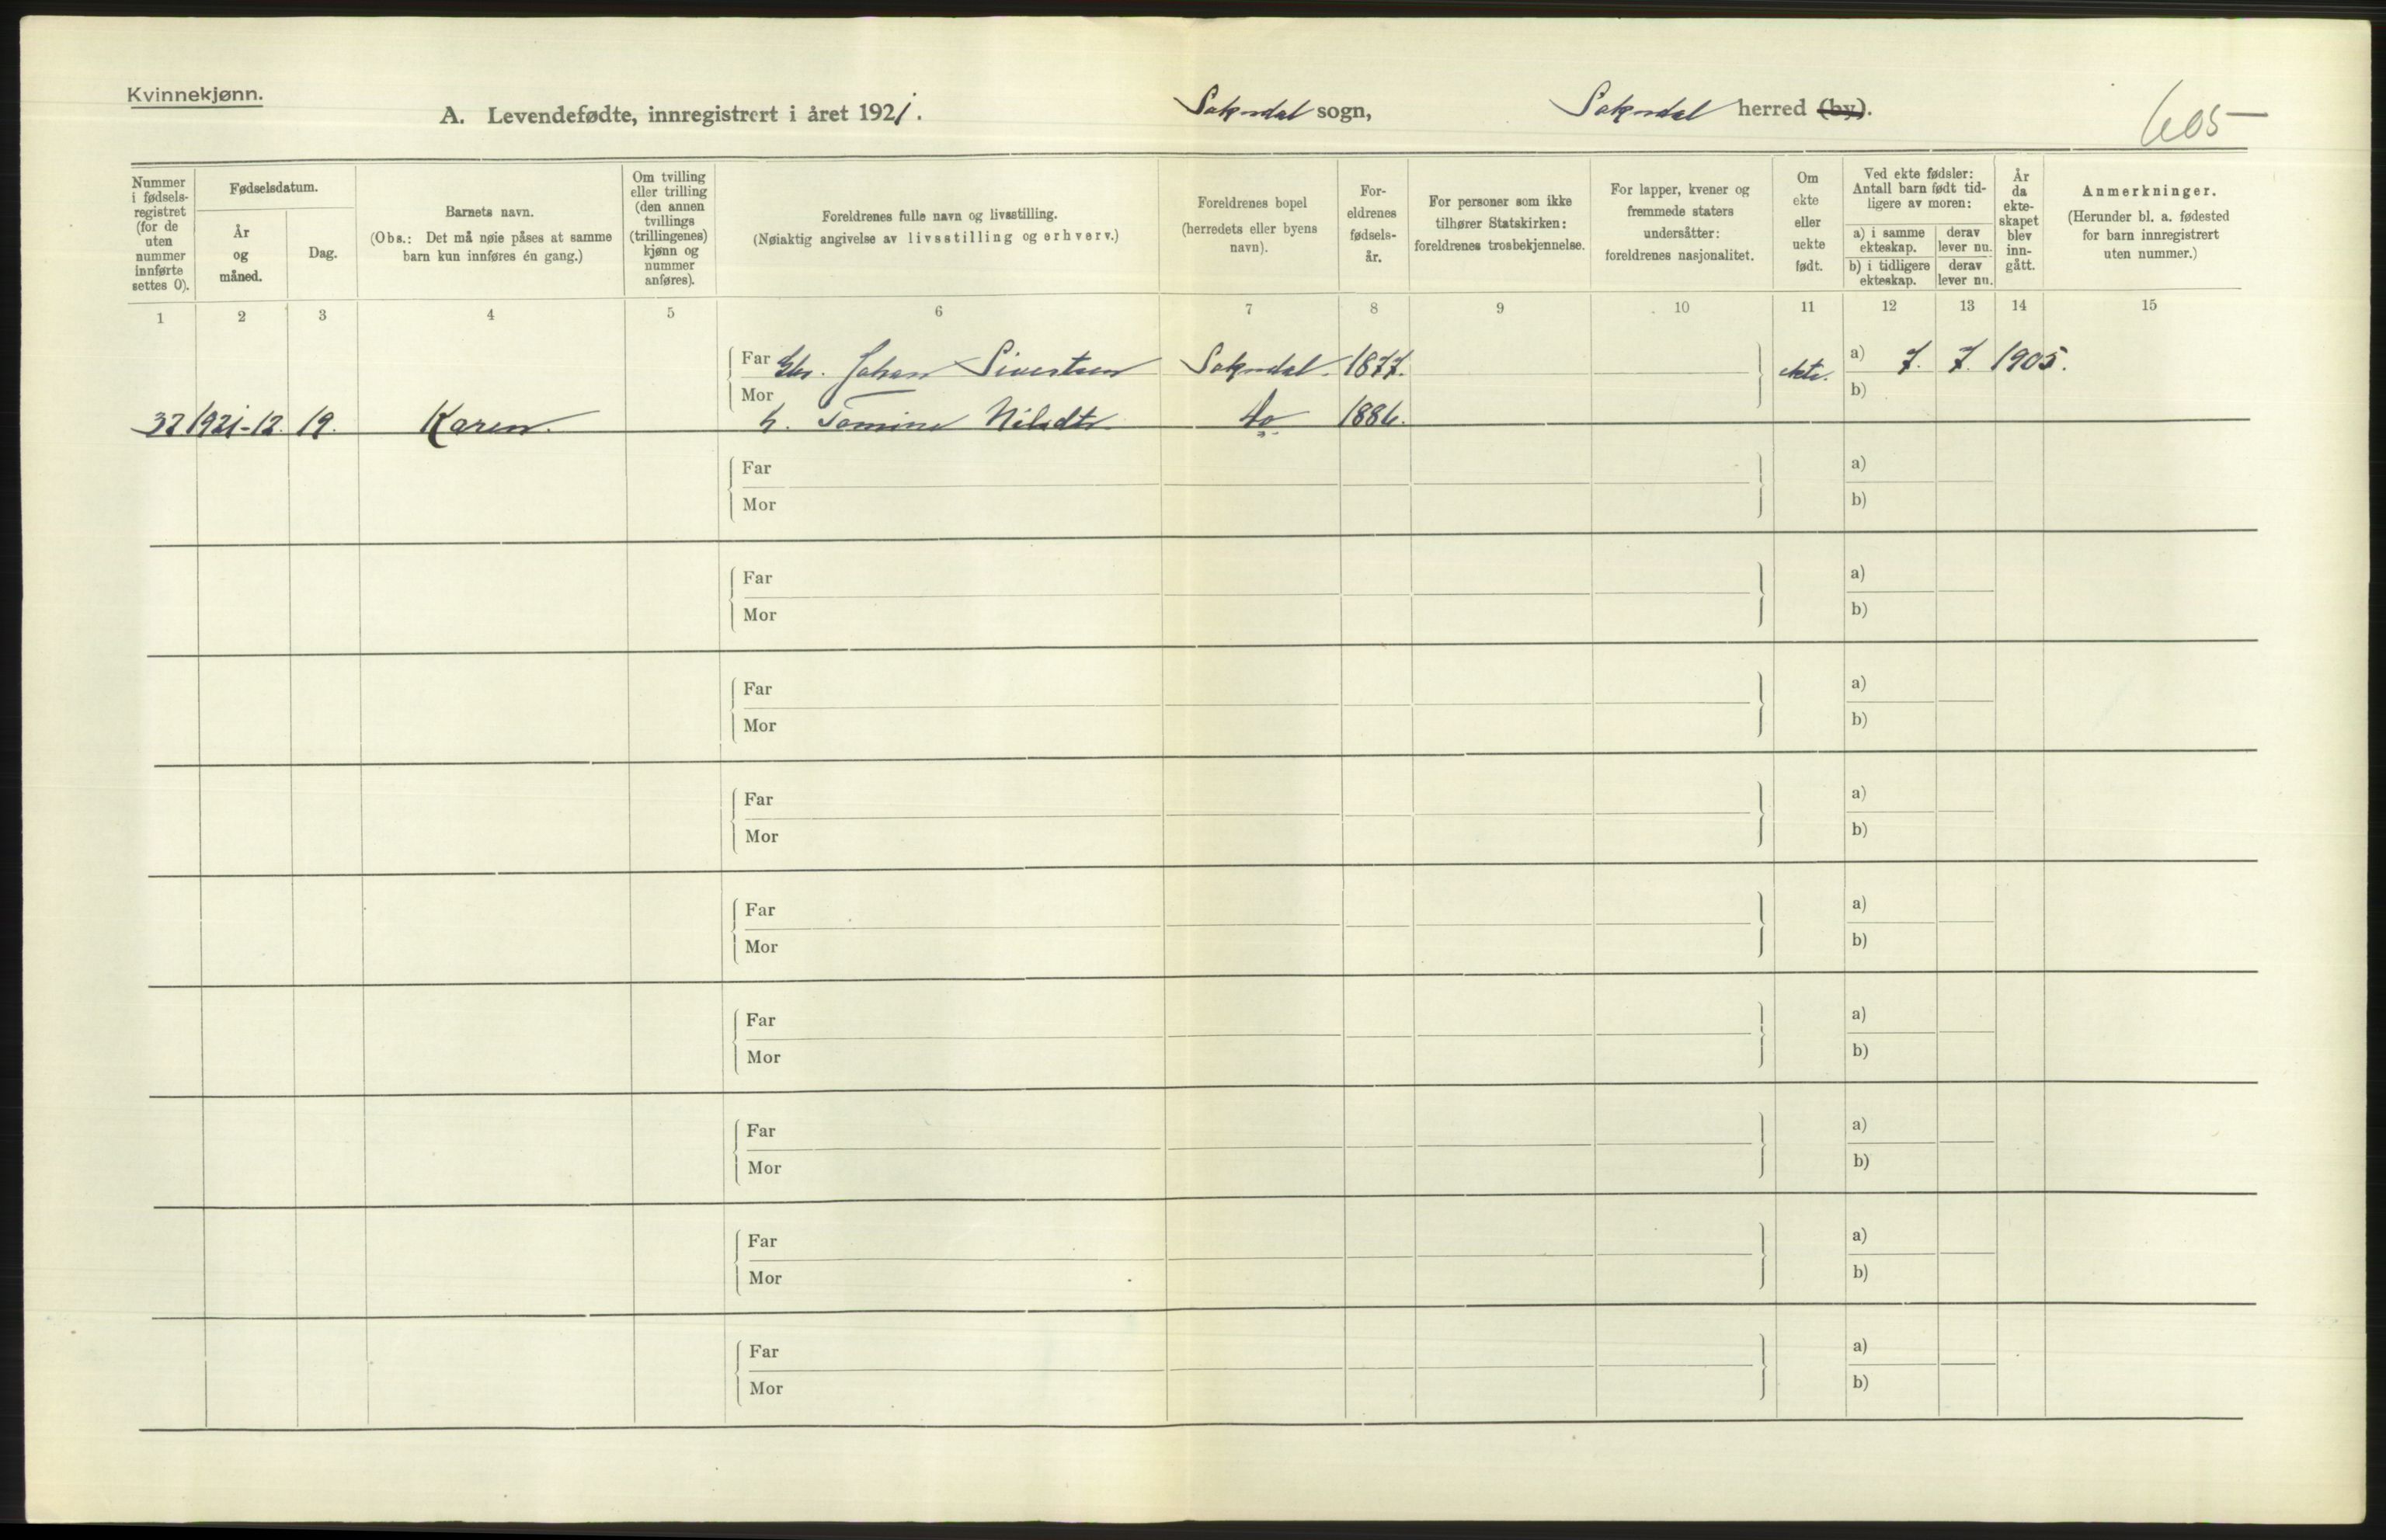 Kvinnekjønn.
A. Levendefødte, innregistrert i året 1921. Sokndal sogn, Sokndal herred (by).
605
Nummer i fødsels-registret (for de uten nummer innførte settes 0).
Fødselsdatum.
År og måned.
Dag.
Barnets navn.
(Obs.: Det må nøie påses at samme barn kun innføres én gang.)
Om tvilling eller trilling (den annen tvillings (trillingenes) kjønn og nummer anføres).
Foreldrenes fulle navn og livsstilling.
(Nøiaktig angivelse av livsstilling og erhverv.)
Foreldrenes bopel (herredets eller byens navn).
For-eldrenes fødsels-år.
For personer som ikke tilhører Statskirken: foreldrenes trosbekjennelse.
For lapper, kvener og fremmede staters undersåtter: foreldrenes nasjonalitet.
Om ekte eller uekte født.
Ved ekte fødsler: Antall barn født tid-ligere av moren:
a) i samme ekteskap. derav lever nu.
b) i tidligere ekteskap. derav lever nu.
År da ekte-skapet blev inn-gått.
Anmerkninger.
(Herunder bl. a. fødested for barn innregistrert uten nummer.)
1 2 3 4 5 6 7 8 9 10 11 12 13 14 15
Far Johan Sivertsen Sokndal. 1877. ekte. a) 7. 7. 1905.
Mor b)
32 1921-12. 19. Karen. h. Tomine Nilsdtr. do 1886.
Far a)
Mor b)
Far a)
Mor b)
Far a)
Mor b)
Far a)
Mor b)
Far a)
Mor b)
Far a)
Mor b)
Far a)
Mor b)
Far a)
Mor b)
Far a)
Mor b)